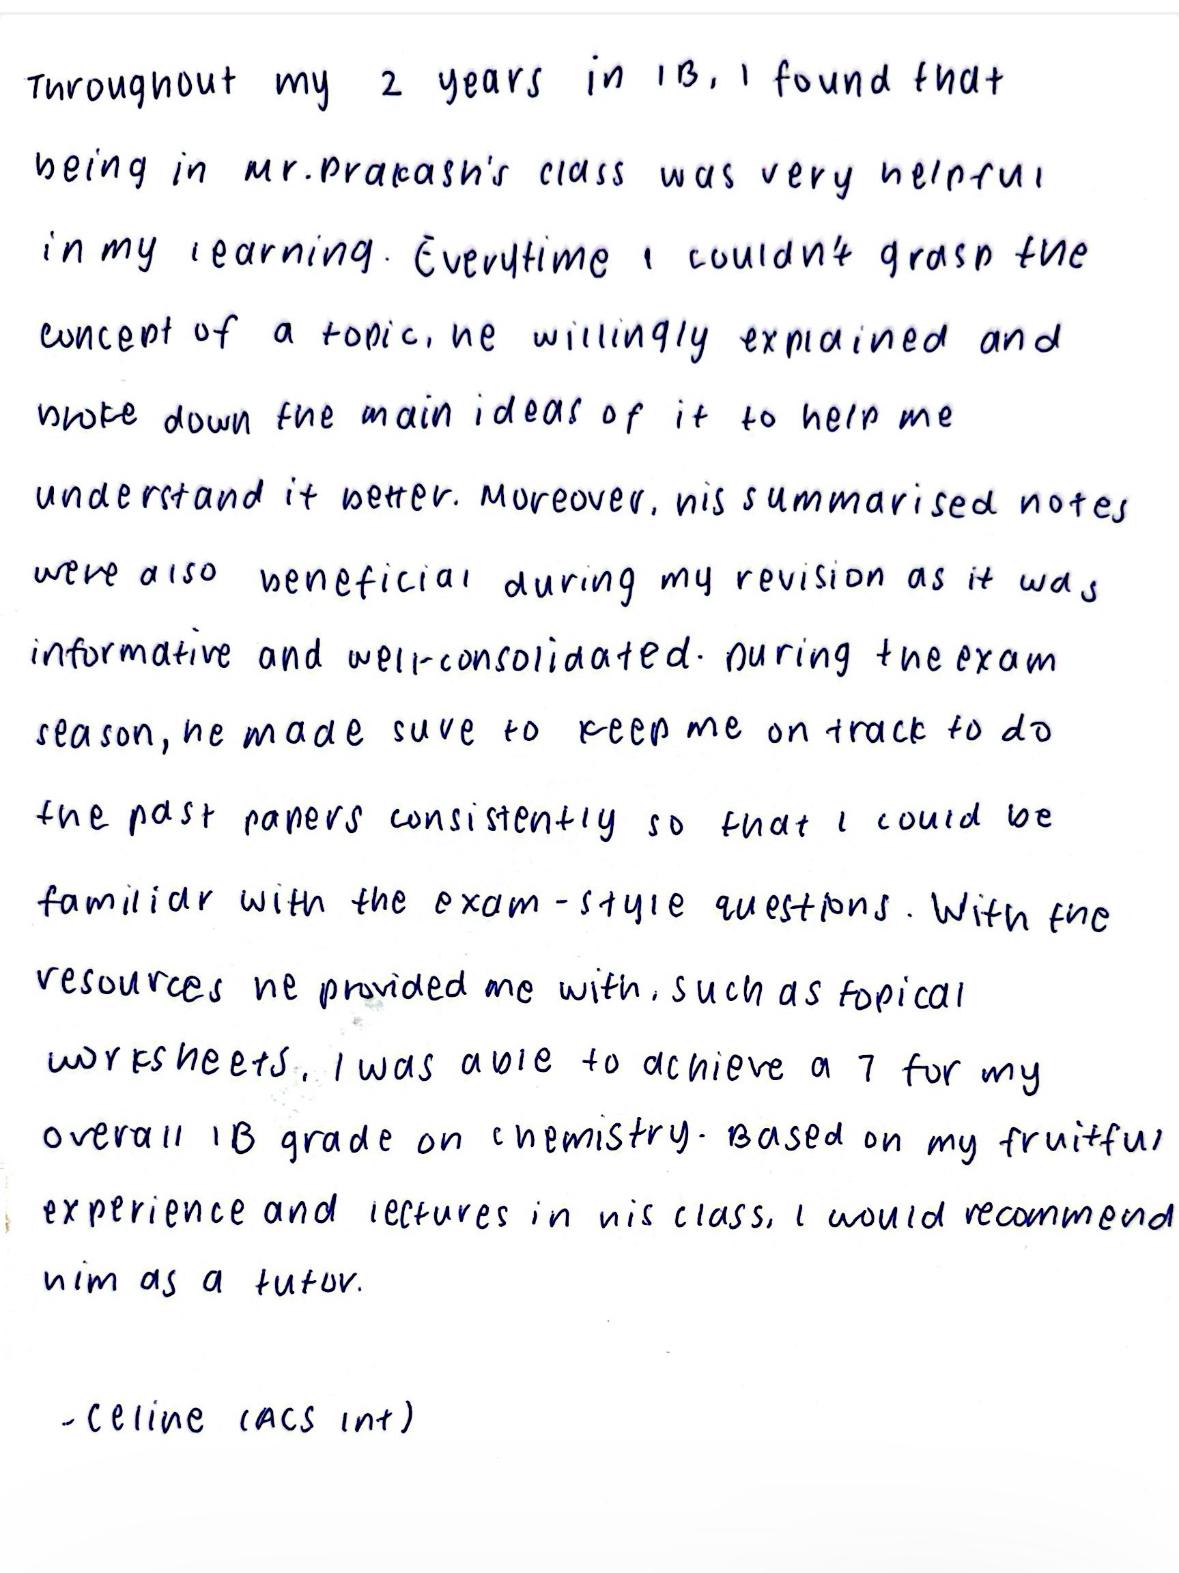 Throughout my 2 years in IB, I found that
being in Mr. Prakash's class was very helpful
in my learning. Everytime I couldn't grasp the
concept of a topic, he willingly explained and
broke down the main ideas of it to help me
understand it better. Moreover, his summarised notes
were also beneficial during my revision as it was
informative and well-consolidated. During the exam
season, he made sure to keep me on track to do
the past papers consistently so that I could be
familiar with the exam-style questions. With the
resources he provided me with, such as topical
worksheets, I was able to achieve a 7 for my
overall IB grade on chemistry. Based on my fruitful
experience and lectures in his class, I would recommend
him as a tutor.
- Celine (ACS Int)